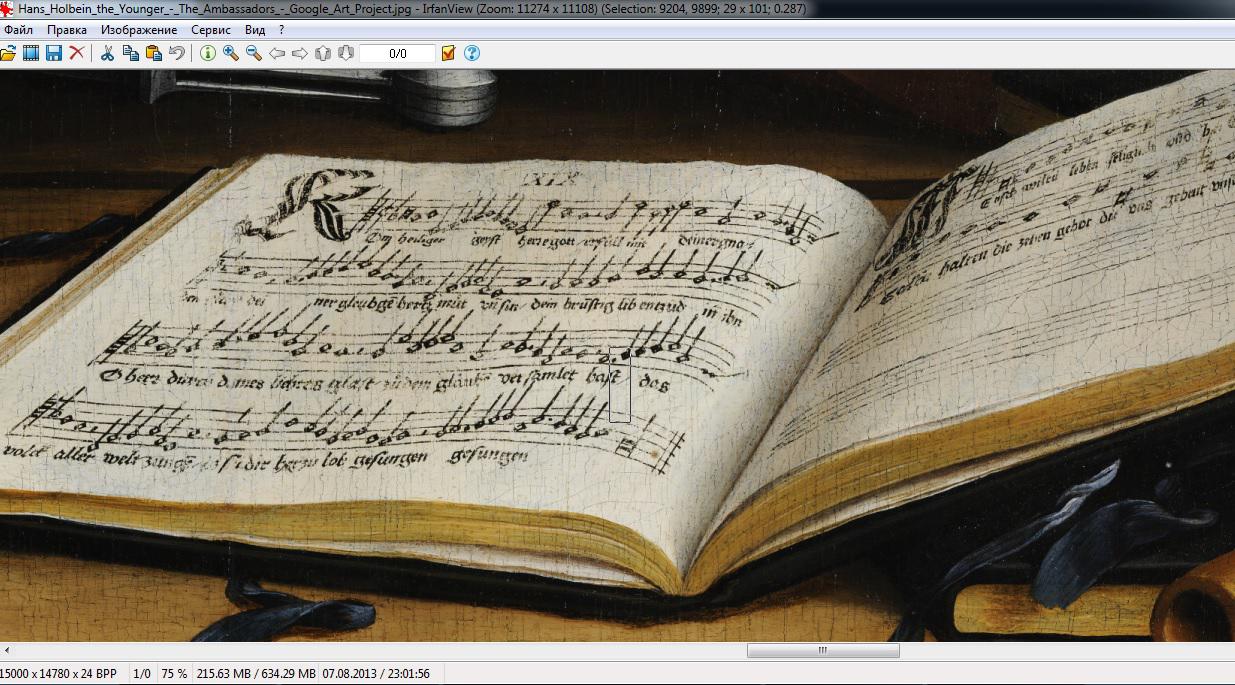 Hans_Holbein_the_Younger_-_The_Ambassadors_-_Google_Art_Project.jpg - IrfanView (Zoom: 11274 x 11108) (Selection: 9204, 9899; 29 x 101; 0.287)
Файл Правка Изображение Сервис Вид ?
0/0
XIX
Kom heiliger geyst herregott erfüll mit deinergna-
ner gleubgē hertz mut vn sin dem brüstig lib entzud in ihn
O herr durch deines liehtes glast zu dem glaubē versamlet hast das
volck aller welt zunge dir herzu lob gesungen gesungen
Mensch wiltu leben seliglich und bei
Soltu halten die zehen gebot die uns gebeut unser
15000 x 14780 x 24 BPP 1/0 75 % 215.63 MB / 634.29 MB 07.08.2013 / 23:01:56